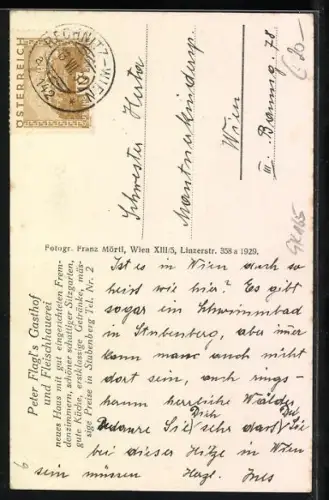 ÖSTERREICH
RECHNITZ-WIEN
Schwester Herta
Mautnerkindersp.
Wien
III. Baumg. 75
Fotogr. Franz Mörtl, Wien XIII/5, Linzerstr. 358 a 1929.
Peter Flagl's Gasthof
und Fleischhauerei
neues Haus mit gut eingerichteten Frem-
denzimmern, schöner schattiger Sitzgarten,
gute Küche, erstklassige Getränke, mäs-
sige Preise in Stubenberg Tel. Nr. 2
Ist es in Wien auch so
heiss wie hier? Es gibt
sogar ein Schwimmbad
in Stubenberg, aber immer
kann man auch nicht
dort sein, auch rings-
herum herrliche Wälder
Bedaure Sie Dich sehr dass Sie Du
bei dieser Hitze in Wien
sein müssen Herzl. Ines